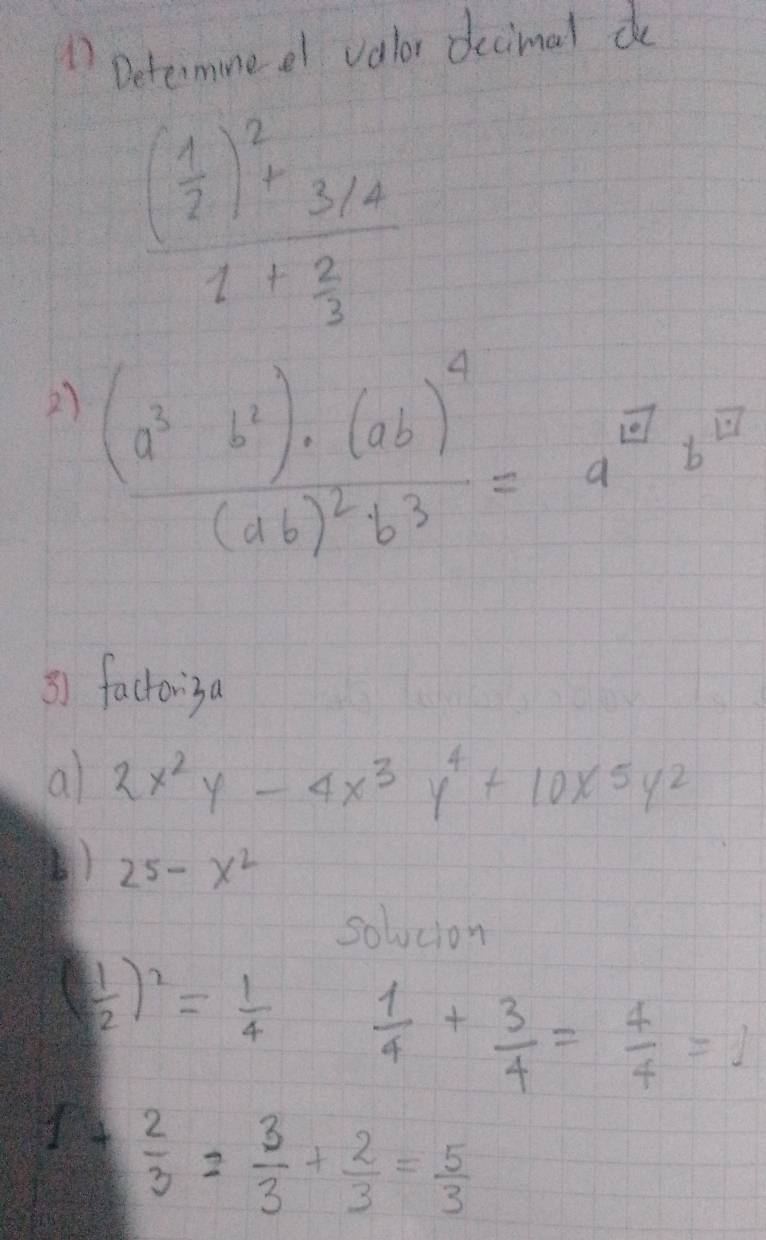 1) Determine el valor decimal de
(1/2)² + 3/4
1 + 2/3
2) (a³ b²) · (ab)⁴
(ab)² · b³ = a^⊡ b^⊡
3) factoriza
a) 2x²y - 4x³ y⁴ + 10x⁵y²
b) 25 - x²
Solucion
(1/2)² = 1/4    1/4 + 3/4 = 4/4 = 1
1 + 2/3 = 3/3 + 2/3 = 5/3